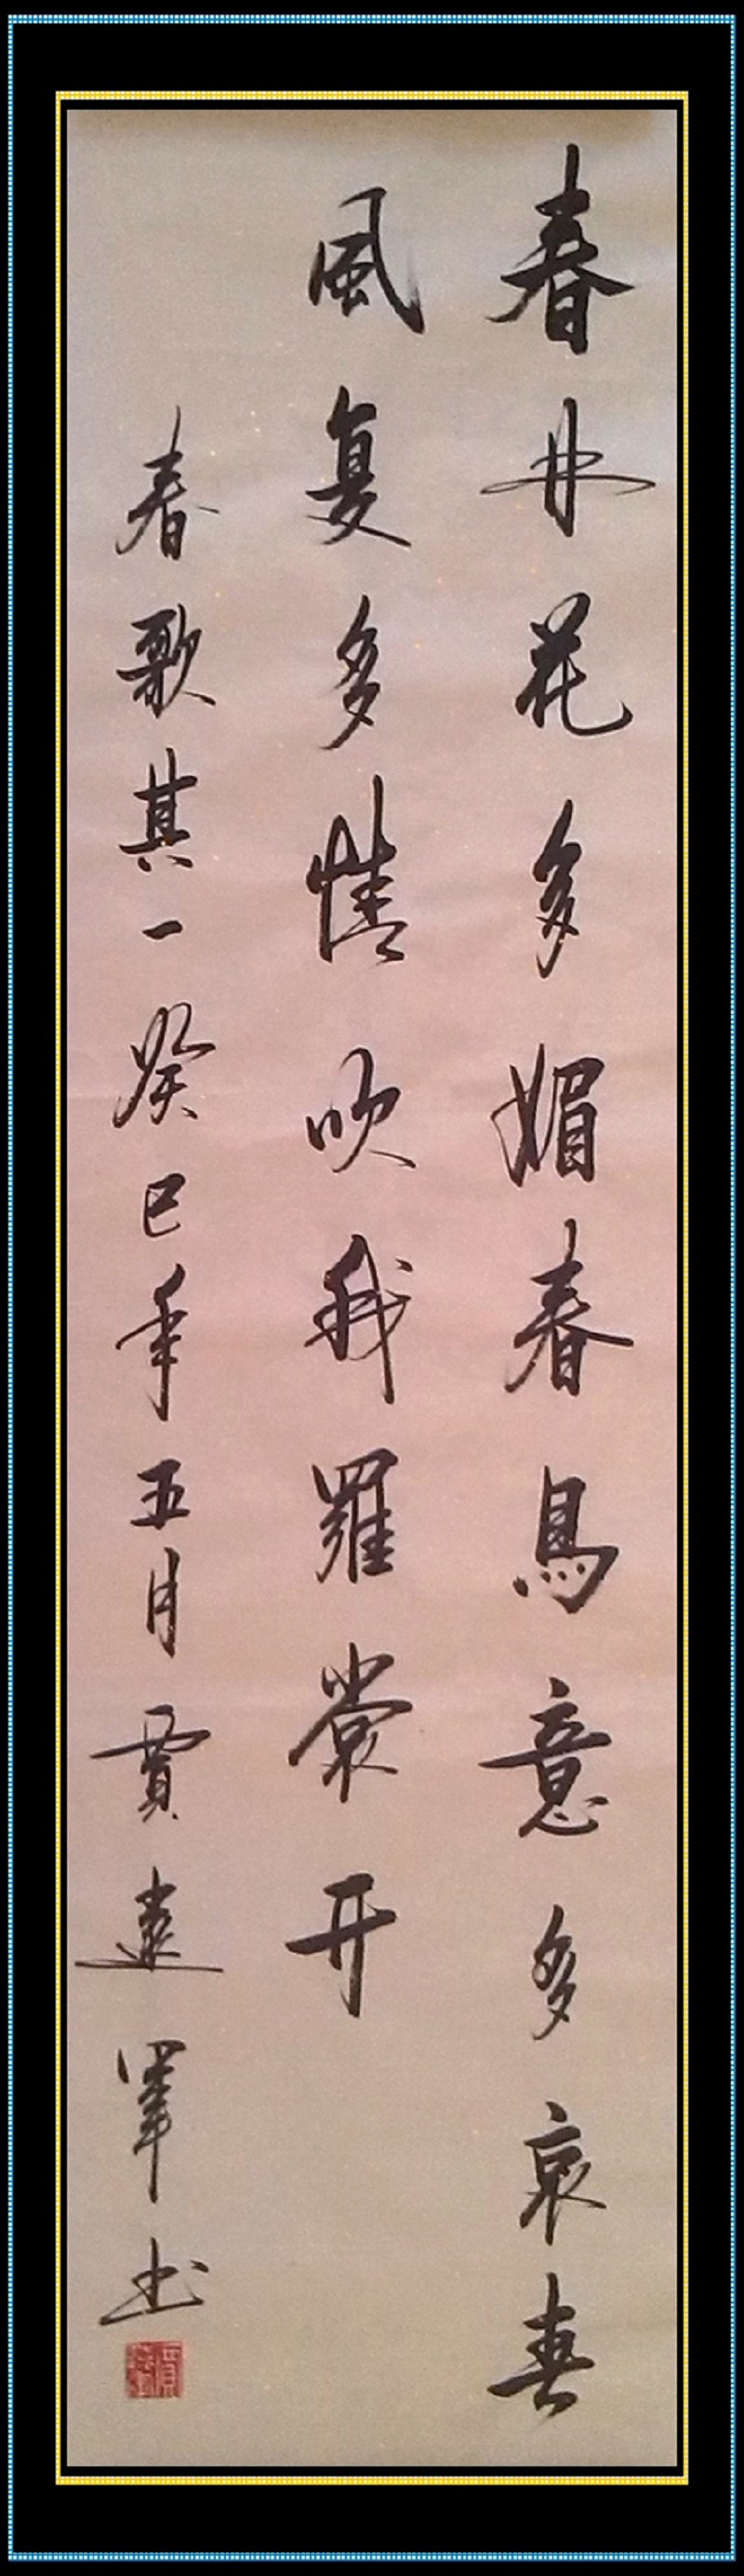 春林花多媚春鳥意多哀春
風复多情吹我羅裳开
春歌其一癸巳年五月賈遠軍书